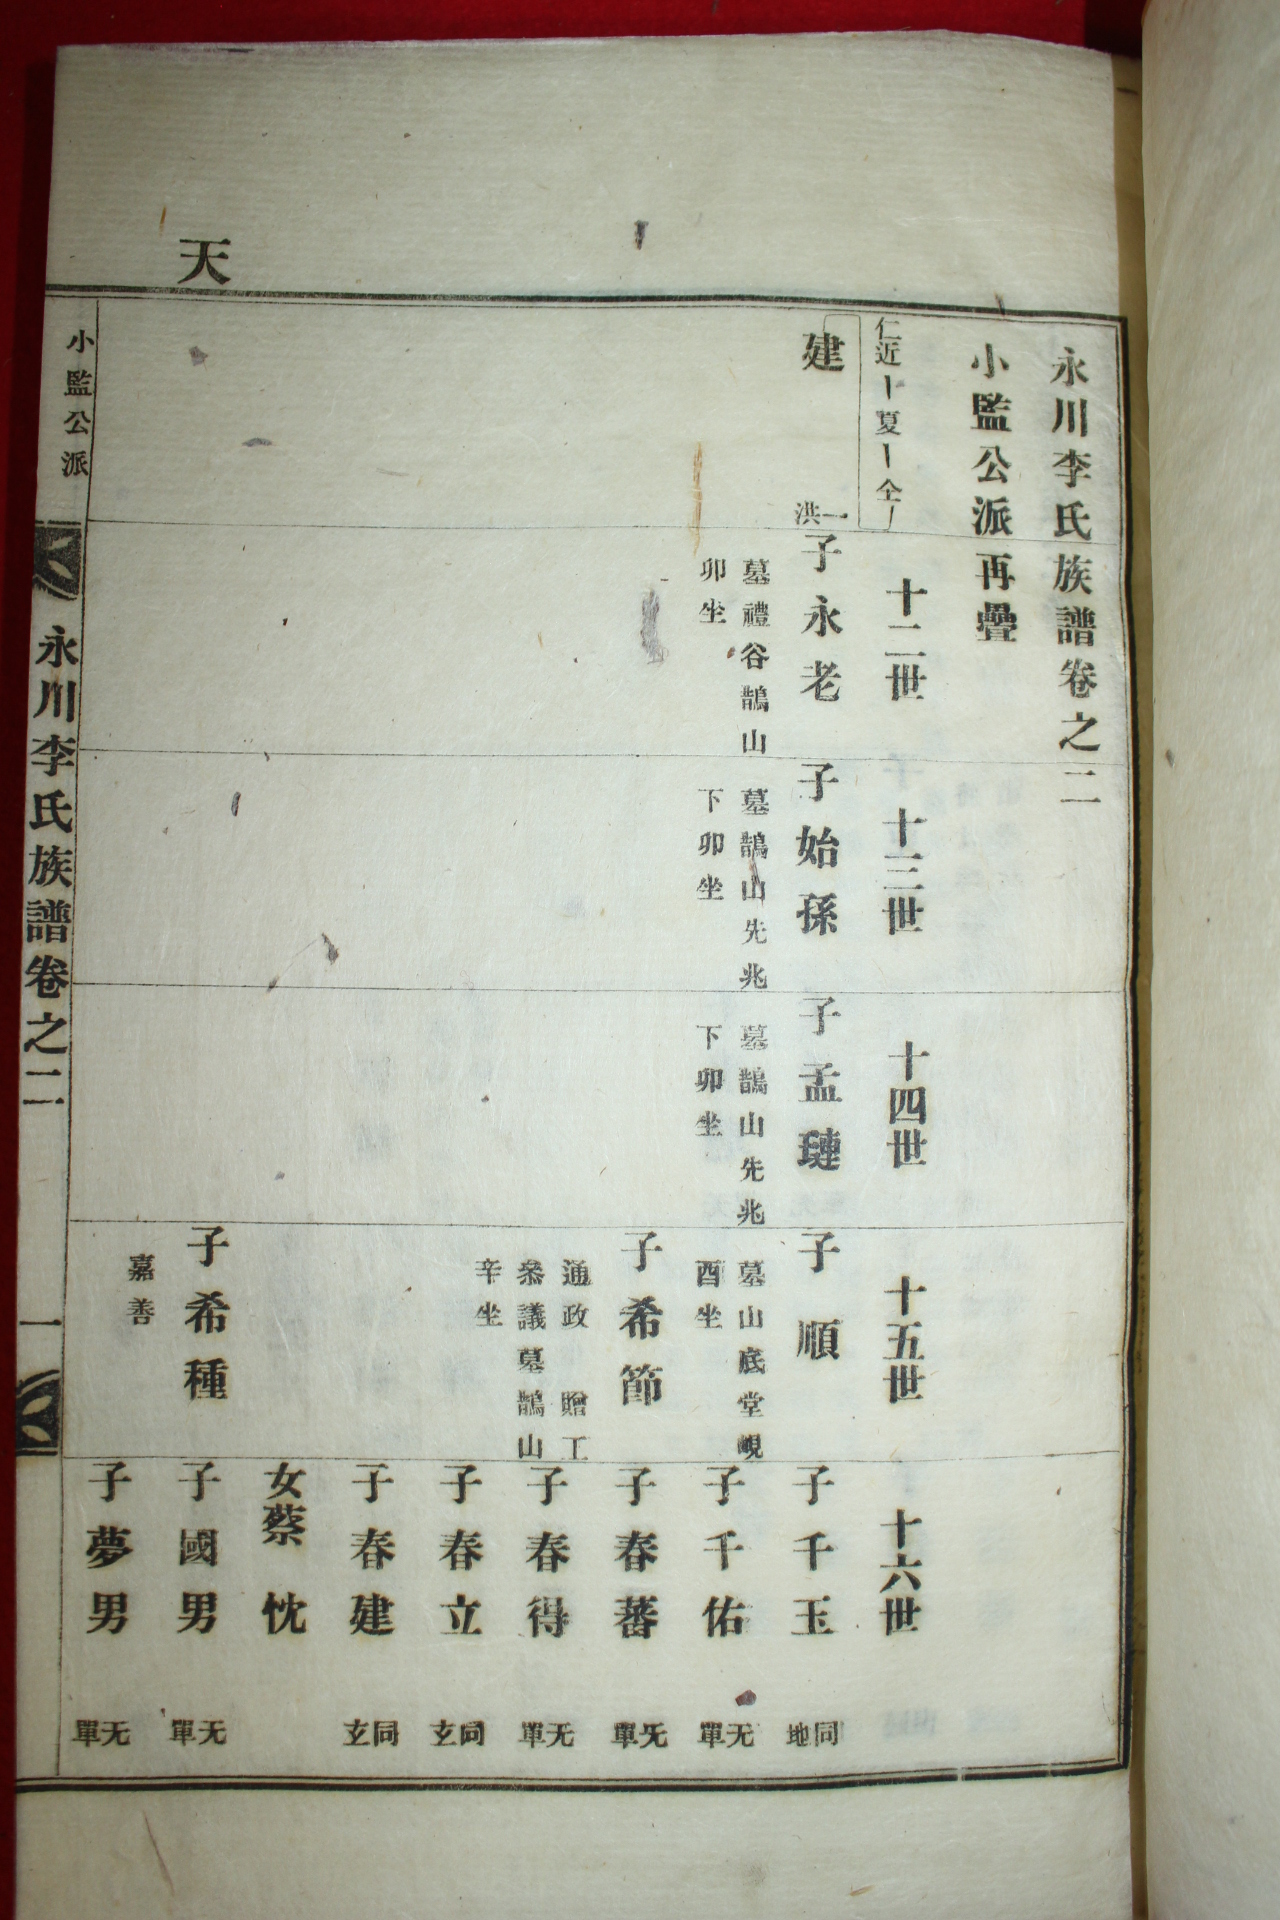 天
永川李氏族譜卷之二
小監公派再疊
仁近ー夏ー仝ー
十二世
十三世
十四世
十五世
十六世
建
一洪
子永老
墓禮谷鵲山
卯坐
子始孫
墓鵲山先兆
下卯坐
子孟璉
墓鵲山先兆
下卯坐
子順
墓山底堂峴
酉坐
子千玉
同地
子千佑
无單
子希節
通政 贈工
叅議墓鵲山
辛坐
子春蕃
无單
子春得
无單
子春立
同玄
子春建
同玄
女蔡忱
子希種
嘉善
子國男
无單
子夢男
无單
小監公派
永川李氏族譜卷之二
一